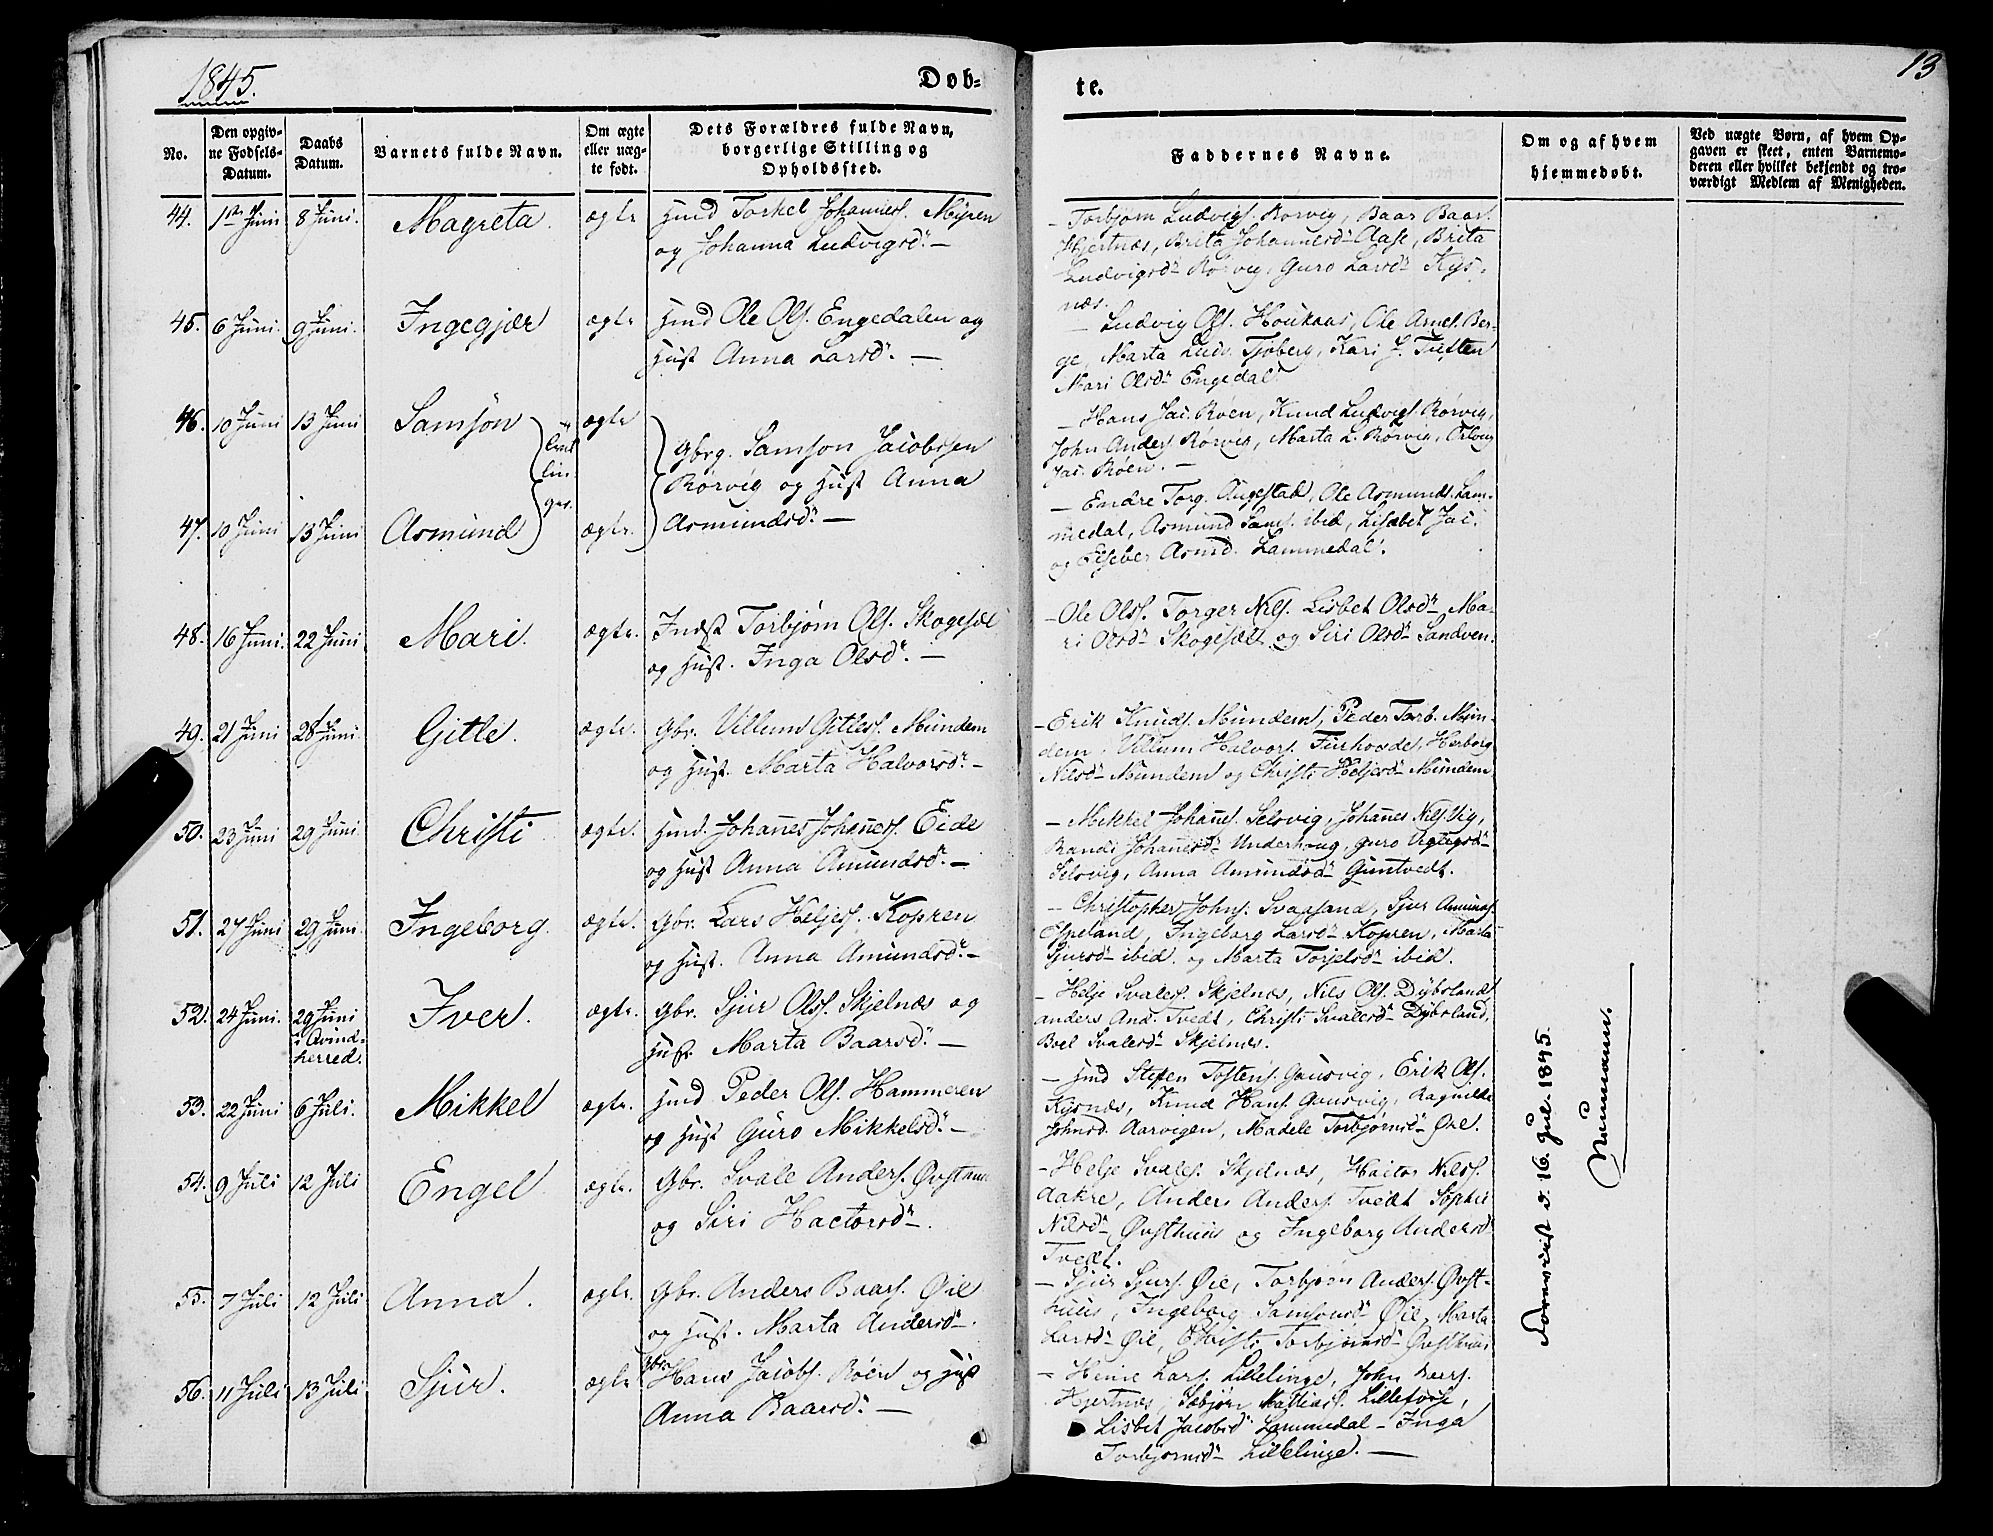 1845.
Døb-
te.
13
No.
Den opgiv-
ne Fødsels-
Datum.
Daabs
Datum.
Barnets fulde Navn.
Om ægte
eller uæg-
te født.
Dets Forældres fulde Navn,
borgerlige Stilling og
Opholdssted.
Faddernes Navne.
Om og af hvem
hjemmedøbt.
Ved uægte Børn, af hvem Op-
gaven er skeet, enten Barnemo-
deren eller hvilket bekjendt og tro-
værdigt Medlem af Menigheden.
44. 1ste Juni 8 Juni. Magreta. ægte Hmd Torkel Johannes. Myren
og Johanna Ludvigsd. —
— Torbjørn Ludvigs. Rørvig, Baar Baars.
Hjertnæs, Brita Johannesd Aase, Brita
Ludvigsd Rørvig, Guro Larsd Kys-
næs.
45. 6 Juni. 9 Juni. Ingegjær ægte Hmd Ole Ols. Engedalen og
Hust Anna Larsd. —
— Ludvig Ols. Houkaas, Ole Arnes. Ber-
ge, Marta Ludv. Tjoberg, Kari J. Tuften
Mari Olsd Engedal
46. 10 Juni 13 Juni Samson ægte
Tvil
lin-
ger.
Gbrg. Samson Jacobsen
Rørvig og Hust Anna
Asmundsd. —
— Hans Jac. Røen, Knud Ludvigs. Rørvig,
John Anders. Rørvig, Marta L. Rørvig,
Jac. Røen. —
47. 10 Juni 13 Juni Asmund ægte.
— Endre Torg. Augestad, Ole Asmunds. Lam-
medal, Asmund Sams. ibid, Lisabet Jac.
og Asmd. Lammedal.
48. 16 Juni. 22 Juni Mari. ægte. Indst Torbjørn Ols. Skogesæl
og Hust. Inga Olsd. —
— Ole Ols. Torger Nils. Lisbet Olsd Ma-
ri Olsd Skogesæl og Siri Olsd Sandven.
49. 21 Juni 28 Juni Gitle. ægte. Gbr. Villum Gitles. Mundem
og Hust. Marta Halvorsd. —
— Erik Knuds. Mundem, Peder Torb. Mun-
dem, Villum Halvors. Furhovde, Herborg
Nilsd Mundem og Christi Heljesd Mundem
50. 23 Juni 29 Juni Christi ægte. Hmd. Johanes Johanes. Eide
og Hust Anna Amundsd. —
— Mikkel Johans. Selsvig, Johanes Nils. Vig,
Randi Johansd Underhoug, Guro
Selsvig, Anna Amundsd Guntvedt.
51. 27 Juni 29 Juni. Ingeborg. ægte. Gbr. Lars Heljes. Kopren
og Hust. Anna Amundsd. —
— Christopher Johns. Svaasand, Sjur Amunds.
Ypeland, Ingeborg Larsd Kopren, Marta
Sjursd ibid. og Marta Torjelsd ibid.
52. 24 Juni. 29 Juni
i Qvind-
herred. Iver. ægte. Gbr. Sjur Ols. Skjelnæs og
Hust. Marta Baarsd. —
— Helje Svales. Skjelnæs, Nils Ols. Dybsland,
Anders And. Tvedt, Christi Svalesd Dybsland,
Boel Svalesd Skjelnæs.
53. 22 Juni 6 Juli. Mikkel ægte. Hmd Peder Ols. Hammeren
og Hust Guro Mikkelsd. —
— Hmd Stefen Tostens. Gausvig, Erik Ols.
Kysnæs, Knud Hans. Gausvig, Ragnilda
Johnsd. Aarvigen, Madele Torbjørnsd Øie.
54. 9 Juli 12 Juli Engel ægte. Gbr. Svale Anders. Øvsthuus
og Siri Hactorsd —.
— Helje Svales. Skjelnæs, Hactor Nilss.
Aakre, Anders Anders. Tvedt Sophie
Nilsd Øvsthuus og Ingeborg Andersd
Tvedt.
55. 7 Juli 12 Juli Anna. ægte. Gbr. Anders Baars. Øie
og Hust. Marta Andersd —.
— Sjur Sjurs. Øie, Torbjørn Anders. Øvst-
huus, Ingeborg Samsonsd Øie, Marta
Larsd Øie, Christi Torbjørnsd Øvsthuus
56. 11 Juli 13 Juli Sjur. ægte Gbr. Hans Jacobs. Røen og Hust
Anna Baarsd. —
— Heine Lars. Lillelinge, John Baars.
Hjertnæs, Sæbjørn Matias. Lillefosse,
Lisbet Jacobsd Lammedal — Inga
Torbjørnsd Lillelinge. —
d. 16. Jul. 1845.
Neumann.